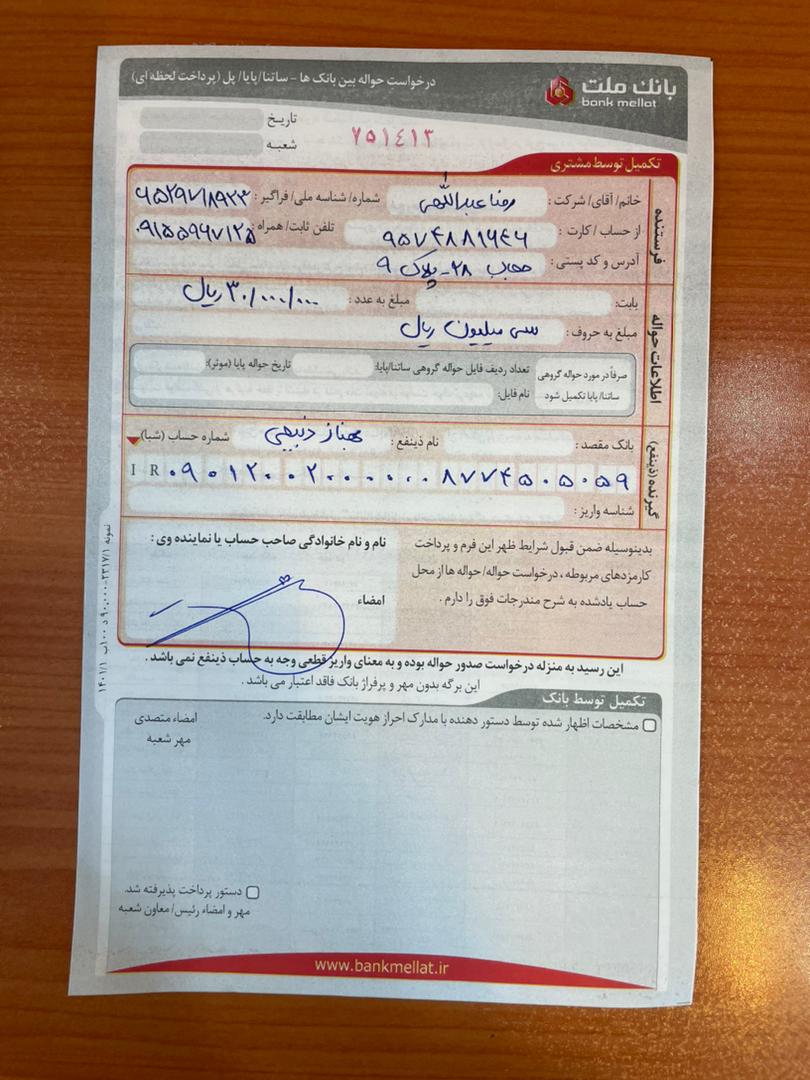 بانک ملت
bank mellat
درخواست حواله بین بانک ها - ساتنا/پایا/پل (پرداخت لحظه ای)
تاریخ
شعبه
۷۵۱۴۱۳
تکمیل توسط مشتری
فرستنده
خانم/آقای/شرکت: رضا عبداللهی شماره/شناسه ملی/فراگیر: ۶۵۲۹۷۱۸۹۲۳
از حساب/کارت: ۹۵۷۴۸۸۱۶۴۶ تلفن ثابت/همراه: ۰۹۱۵۵۹۶۷۱۲۵
آدرس و کد پستی: ۲۸- پلاک ۹
اطلاعات حواله
بابت: مبلغ به عدد: ۳۰/۰۰۰/۰۰۰ ریال
مبلغ به حروف: سی میلیون ریال
صرفاً در مورد حواله گروهی ساتنا/پایا تکمیل شود
تعداد ردیف فایل حواله گروهی ساتنا/پایا: تاریخ حواله پایا (موثر):
نام فایل:
گیرنده (ذینفع)
بانک مقصد: نام ذینفع: مهناز شماره حساب (شبا)
IR ۰۹۰۱۲۰۰۲۰۰۰۰۰۰۸۷۷۴۵۰۵۰۵۹
شناسه واریز:
بدینوسیله ضمن قبول شرایط ظهر این فرم و پرداخت
کارمزدهای مربوطه، درخواست حواله/حواله ها از محل
حساب یادشده به شرح مندرجات فوق را دارم.
نام و نام خانوادگی صاحب حساب یا نماینده وی:
امضاء
این رسید به منزله درخواست صدور حواله بوده و به معنای واریز قطعی وجه به حساب ذینفع نمی باشد.
این برگه بدون مهر و پرفراژ بانک فاقد اعتبار می باشد.
تکمیل توسط بانک
مشخصات اظهار شده توسط دستور دهنده با مدارک احراز هویت ایشان مطابقت دارد.
امضاء متصدی
مهر شعبه
دستور پرداخت پذیرفته شد.
مهر و امضاء رئیس/معاون شعبه
www.bankmellat.ir
نمونه ۲۳۱۷/۱-۹۰.۰۰۰ د ۱۰۰ب ۱۴۰۱/۱